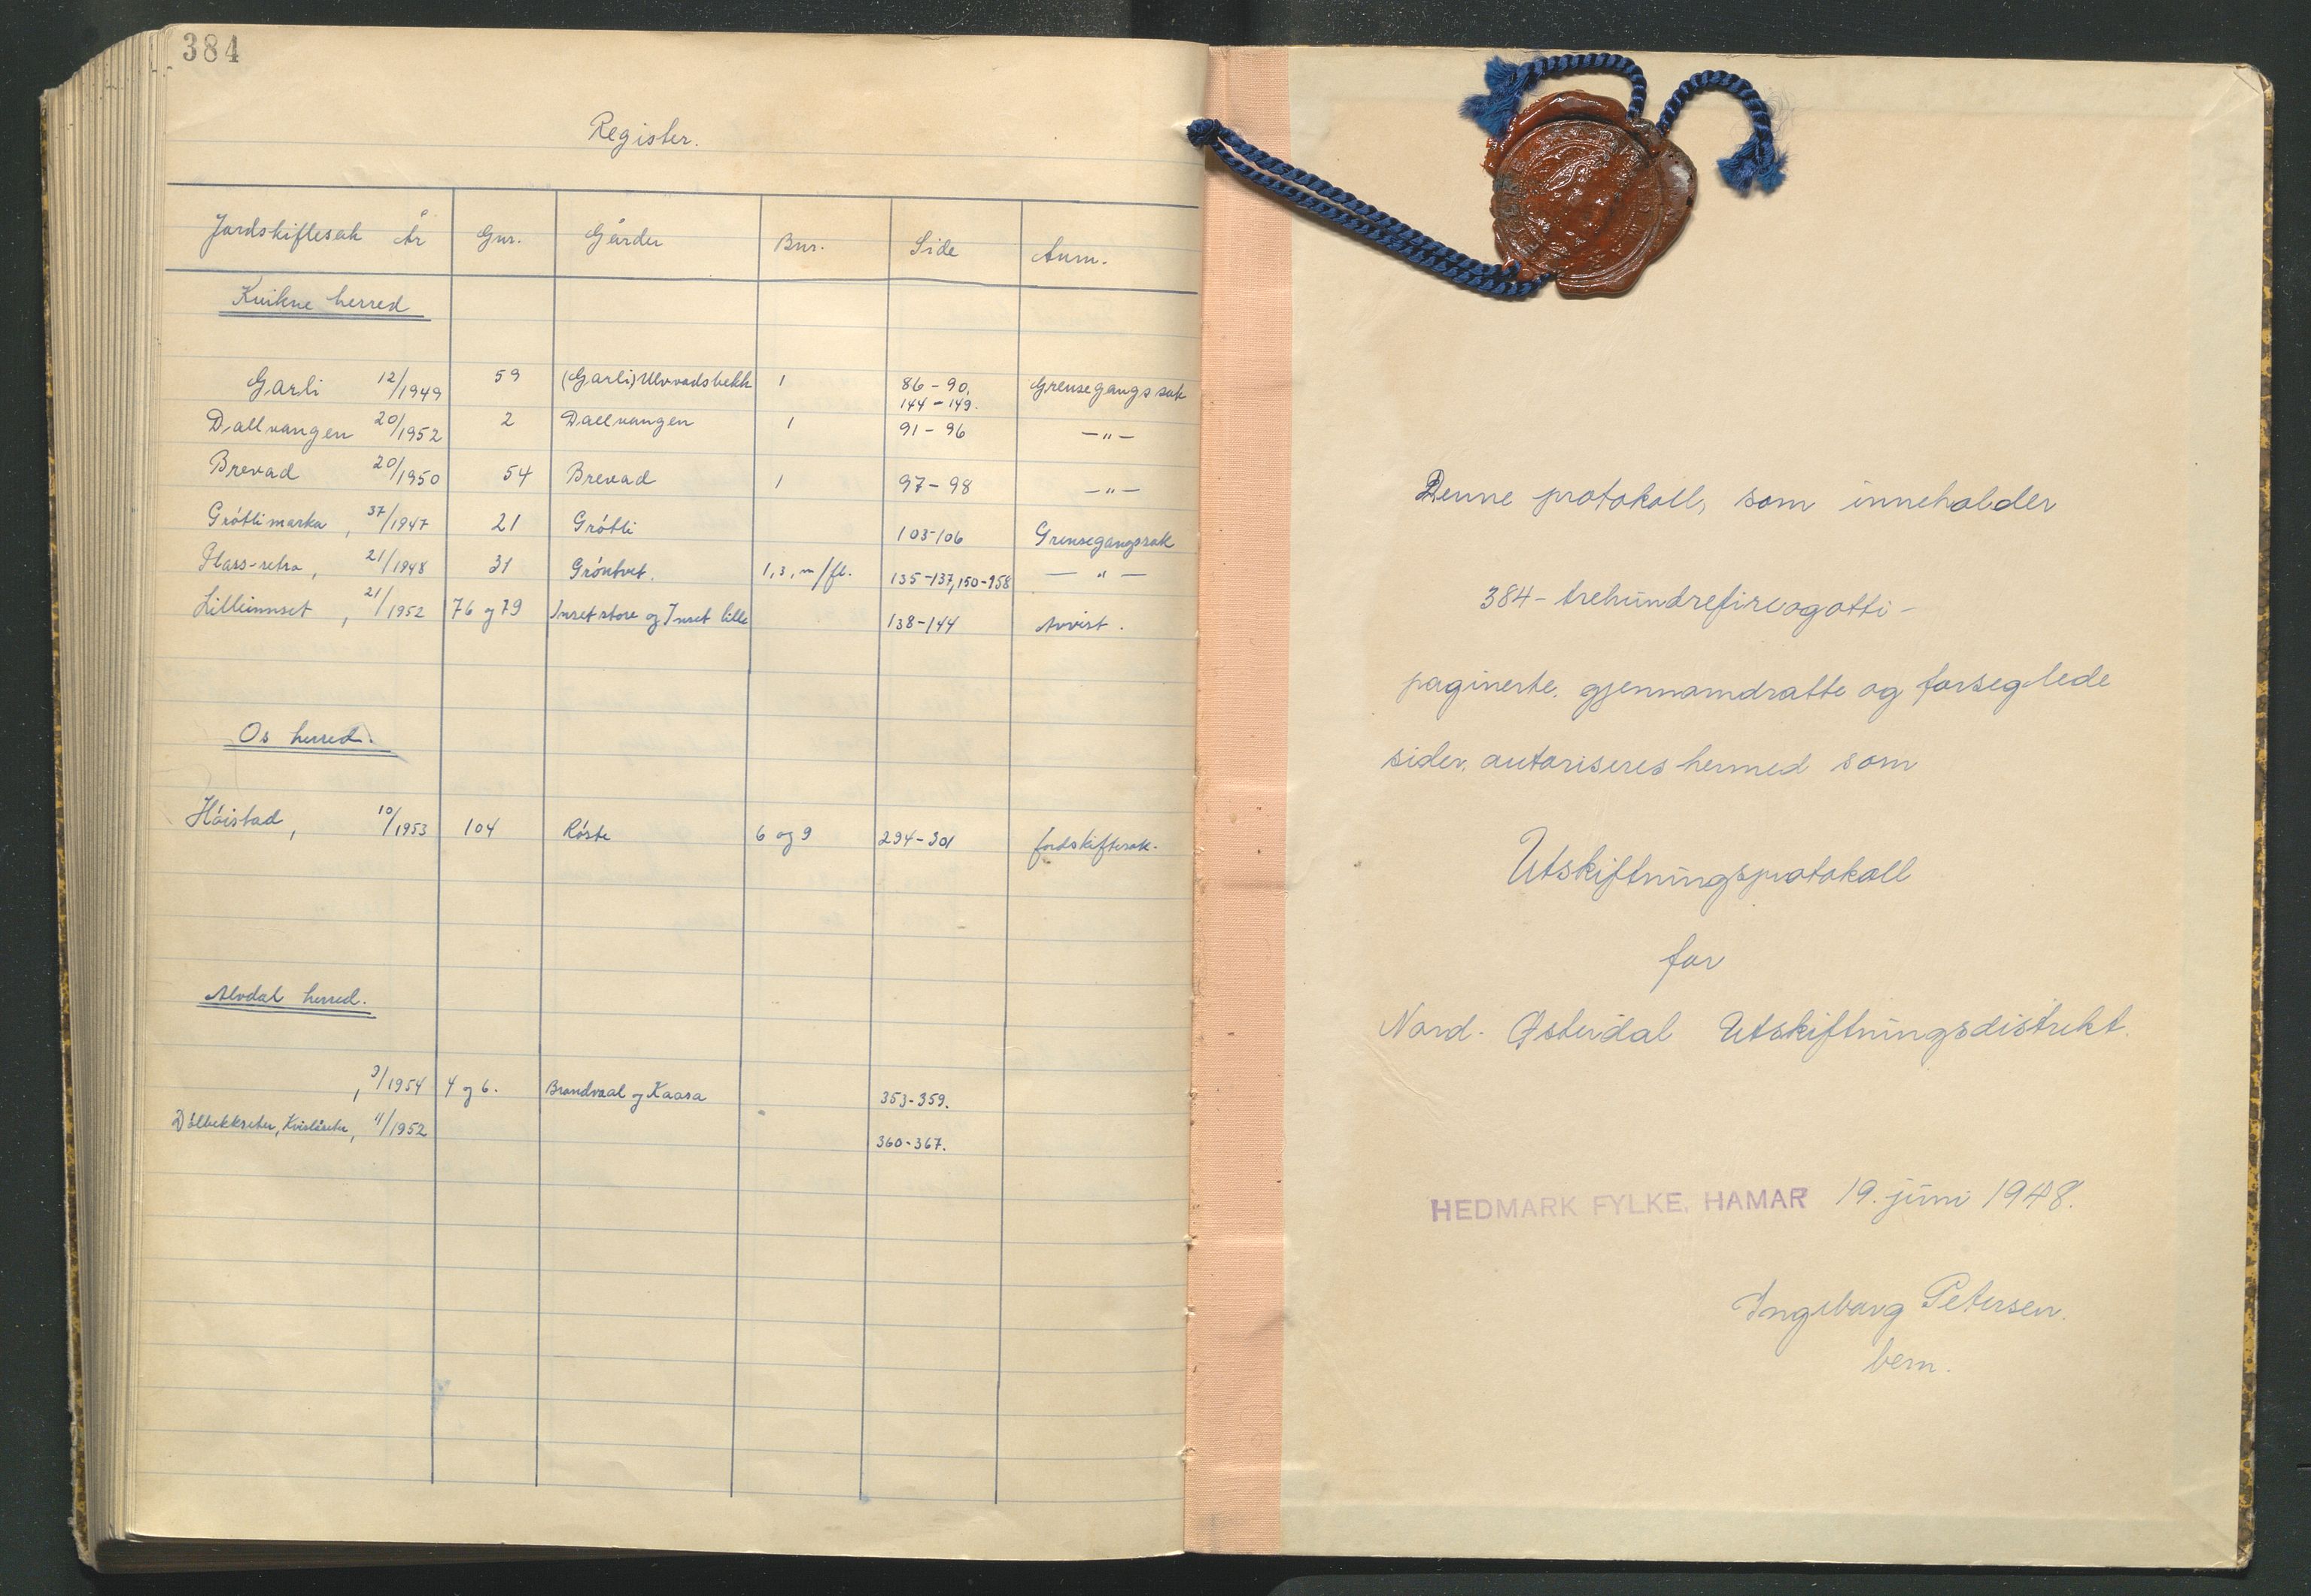 384
Register.
Jordskiftesak År Gnr. Gårder Bnr. Side Anm.
Kvikne herred
Garli 12/1949 59 (Garli) Ulvvadsbekk 1 86-90, Grensegangssak
144-149.
Dallvangen 20/1952 2 Dallvangen 1 91-96 -"-
Brevad 20/1950 54 Brevad 1 97-98 -"-
Gróttimarka, 37/1947 21 Grótti 103-106 Grensegangssak
21/1948 31 Gróntvet. 1,3, m/fl. 135-137, 150-158 - " -
Lilleinnset, 21/1952 76 og 79 Inset store og Inset lille 138-144 Avvist.
Os herred.
Hóistad, 10/1953 104 Róste 6 og 9 294-301 Jordskiftesak.
Alvdal herred.
, 9/1954 4 og 6. Brandvaal og Kaasa 353-359.
Dólbekkseter, Kvislåseter, 11/1952 360-367.
Denne protokoll, som inneholder
384 - trehundrefireogotti -
paginerte, gjennomdratte og forseglede
sider, autoriseres hermed som
Utskiftningsprotokoll
for
Nord-Østerdal Utskiftningsdistrikt.
HEDMARK FYLKE, HAMAR 19. juni 1948.
Ingeborg Petersen.
bem.